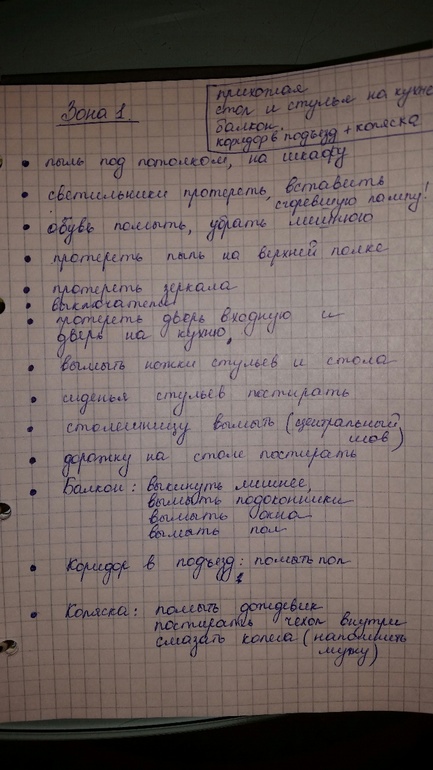 Зона 1.
прихожая
стол и стулья на кухне
балкон.
коридор в подъезд + коляска
• пыль под потолком, на шкафу
• светильники протереть, вставить
сгоревшую лампу!
• обувь помыть, убрать лишнюю
• протереть пыль на верхней полке
• протереть зеркала
• выключатели
• протереть дверь входную и
дверь на кухню.
• вымыть ножки стульев и стола
• сиденья стульев постирать
• столешницу вымыть (центральный
шов)
• дорожку на столе постирать
• Балкон: выкинуть лишнее,
вымыть подоконники
вымыть окна
вымыть пол
• Коридор в подъезд: помыть пол
• Коляска: помыть дождевик
постирать чехол внутри
смазать колеса (напомнить
мужу)